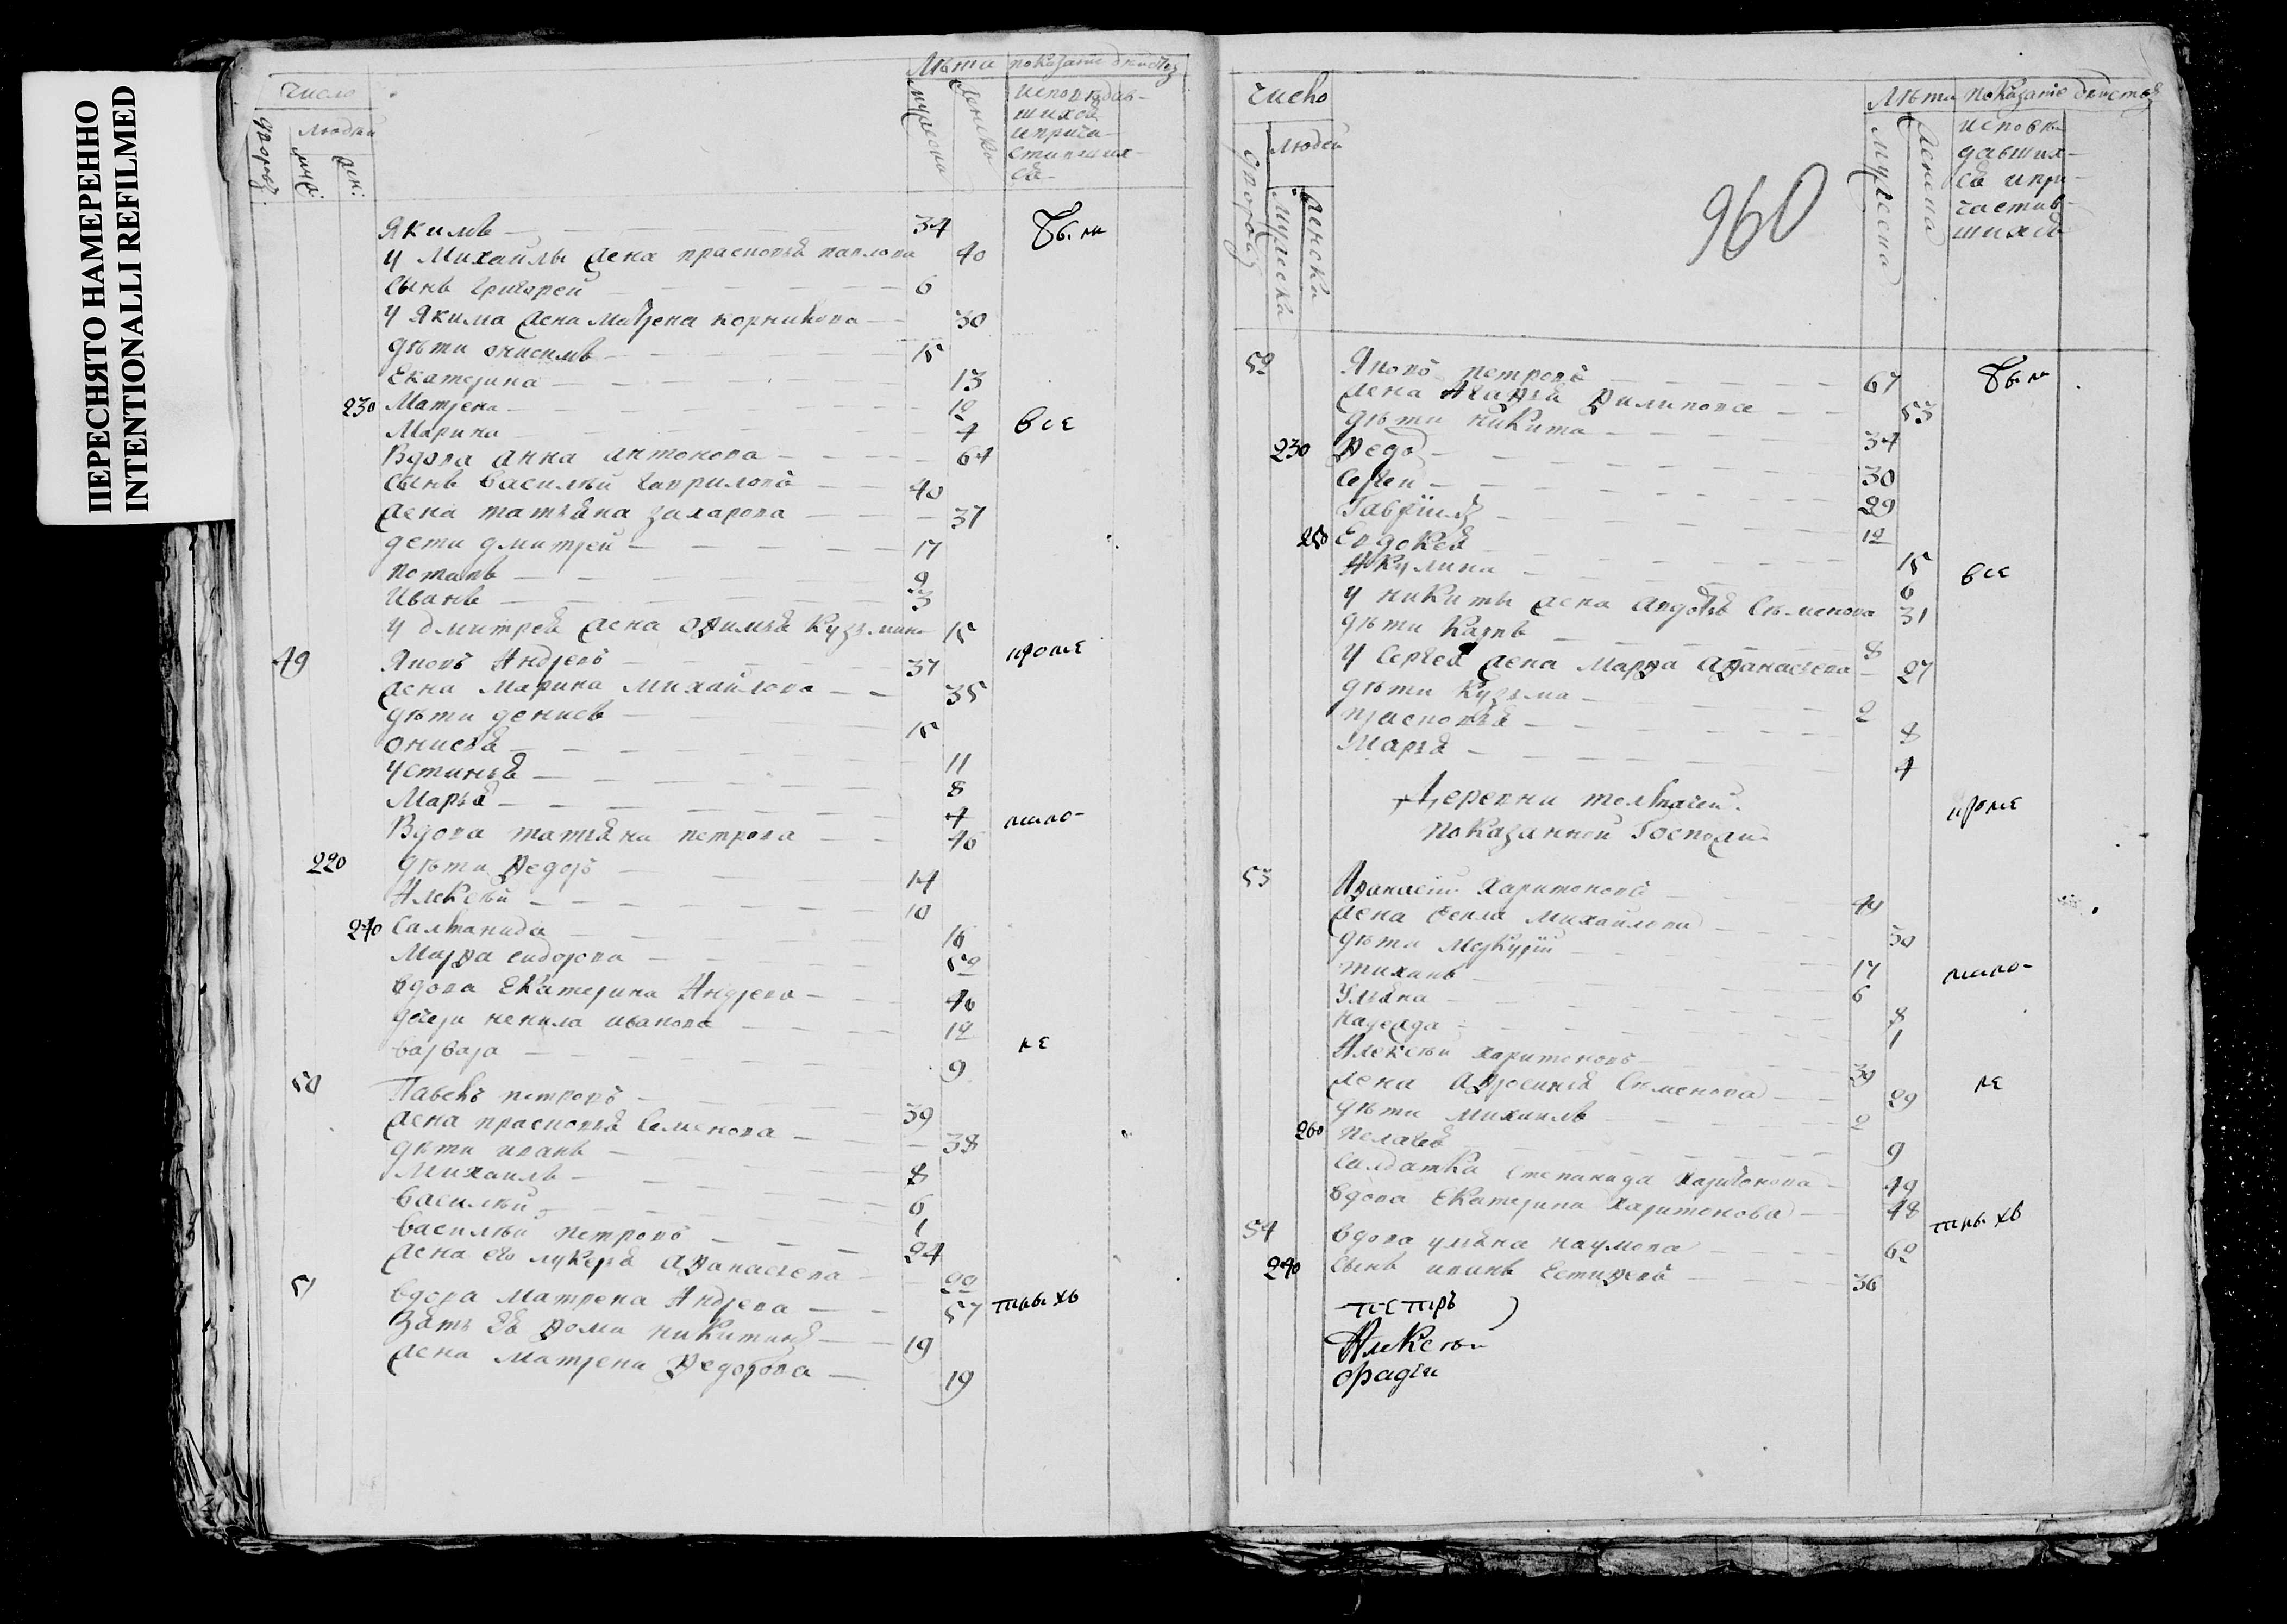 ПЕРЕСНЯТО НАМЕРЕННО
INTENTIONALLI REFILMED
число
людей
муж:
жен:
Лѣта
показание дѣйств
мужеска
женска
исповѣдав-
шихся
и прича-
стивших-
ся
Якимъ 34 были
у Михайлы жена прасковья павлова 40
сынъ григорей 6
у Якима жена матрена корнилова 30
дѣти онисимъ 15
Екатерина 13
230 Матрена 12
Марина 4 все
Вдова анна антонова 64
сынъ василѣй гавриловъ 40
жена татьяна захарова 37
дети дмитрей 17
потапъ 9
Иванъ 3
у дмитрея жена Афимья Кузмина 15
49 Яковъ Андревъ 37 кроме
жена Марина Михайлова 35
дѣти денисъ 15
онисья 11
устинья 8
Марья 4
Вдова татьяна петрова 46 мало-
220 дѣти Федоръ 14
Алексѣй 10
240 Салманида 16
Марфа сидорова 52
вдова Екатерина Андрева 40
дочери ненила иванова 12
варвара 9 ле
50 Павелъ петровъ 39
жена прасковья Семенова 38
дѣти иванъ 8
Михаилъ 6
василѣй 1
василѣй петровъ 24
жена его лукерья Афанасьева 22
51 вдова Матрена Андрева 57 тныхъ
Зять ея Фома никитинъ 19
жена матрена Федорова 19
число
людей
мужеска
женска
960
Лѣта показание дѣйств
мужеска
женска
исповѣ-
давших-
ся и при-
частив-
шихся
52 Яковъ петровъ 67 были
жена Агафья Филипова 53
дѣти никита 34
230 Федоръ 30
Сергей 29
Гавріилъ 12
250 Евдокея 15
Акулина 6 все
у никиты жена авдотья Сѣменова 31
дѣти Карпъ 8
у Сергея жена Марфа Афанасьева 27
дѣти Кузьма 2
прасковья 8
Марья 4
Деревни толкачей
показанной Госпожи кроме
53 Афанасей Харитоновъ 44
жена Фекла Михайлова 50
дѣти Меркурій 17
тихонъ 6 мало-
Ульяна 8
надежда 1
Алексѣй харитоновъ 39
жена Афросинья Сѣменова 29 ле
дѣти михаилъ 2
260 Пелагея 9
салдатка степанида Харитонова 49
вдова Екатерина Харитонова 48
54 вдова ульяна наумова 62 тныхъ
240 сынъ иванъ Естифевъ 36
петръ
Алексѣй
фадѣи